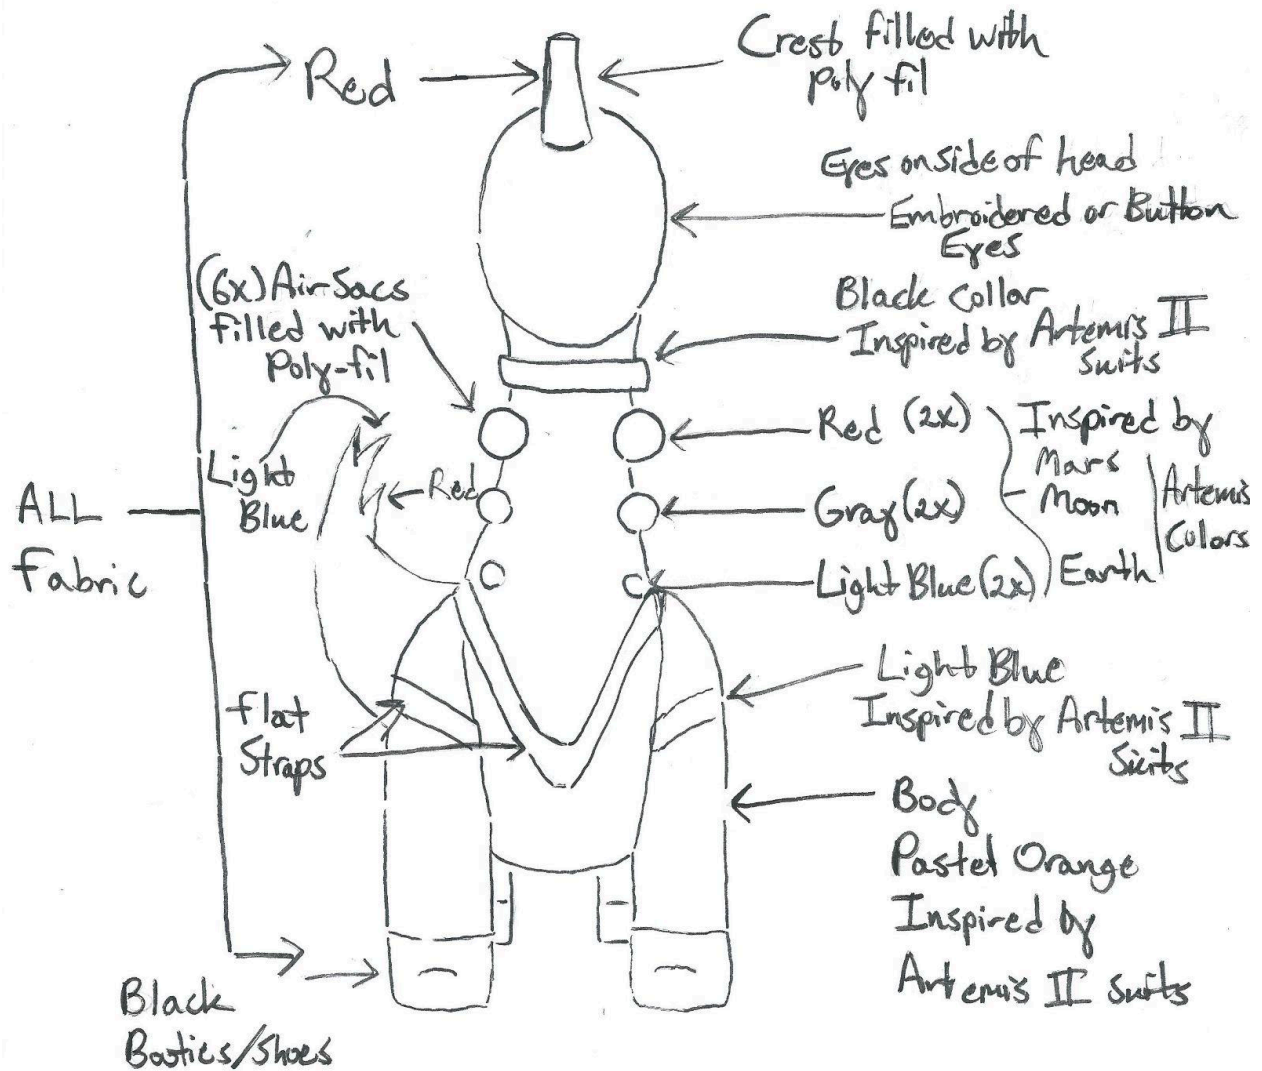 Red
Crest filled with
Poly fil
Eyes on side of head
Embroidered or Button
Eyes
(6x) Air Sacs
filled with
Poly-fil
Black Collar
Inspired by Artemis II
Suits
Red (2x)
Gray (2x)
Light Blue (2x)
Inspired by
Mars
Moon
Earth
Artemis
Colors
Light
Blue
Red
ALL
Fabric
Flat
Straps
Light Blue
Inspired by Artemis II
Suits
Body
Pastel Orange
Inspired by
Artemis II Suits
Black
Booties/Shoes